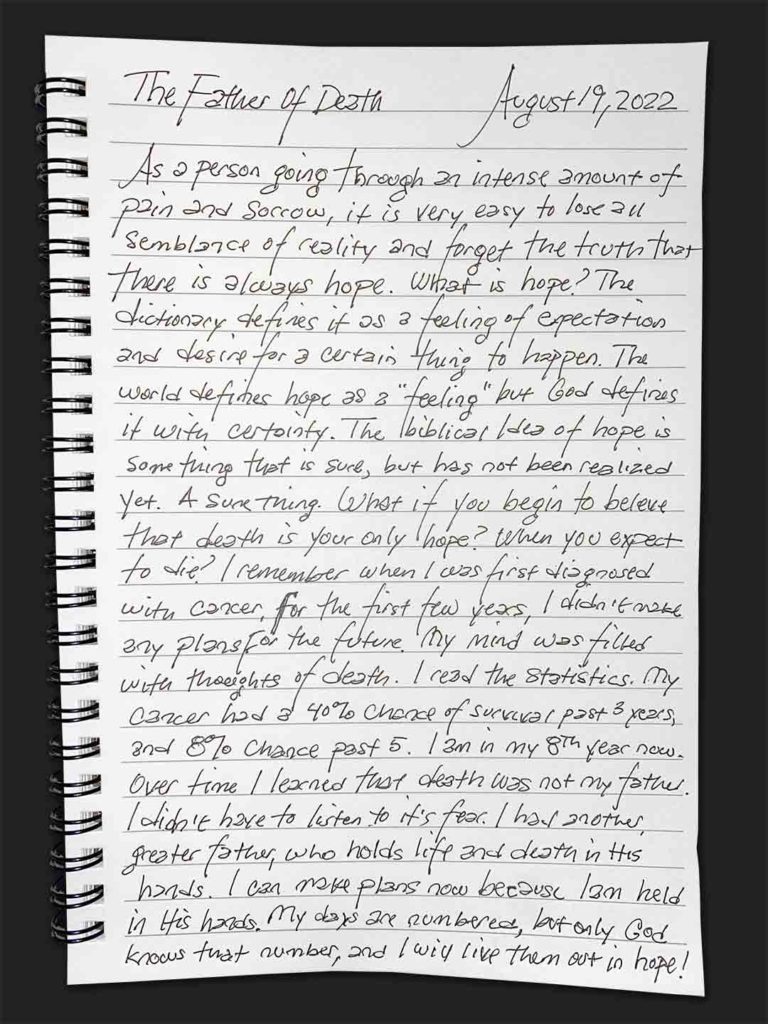 The Father Of Death August 19, 2022
As a person going through an intense amount of
pain and sorrow, it is very easy to lose all
semblance of reality and forget the truth that
there is always hope. What is hope? The
dictionary defines it as a feeling of expectation
and desire for a certain thing to happen. The
world defines hope as a "feeling" but God defines
it with certainty. The biblical Idea of hope is
something that is sure, but has not been realized
yet. A sure thing. What if you begin to beleve
that death is your only hope? When you expect
to die? I remember when I was first diagnosed
with cancer, for the first few years, I didn't make
any plans for the future. My mind was filled
with thoughts of death. I read the statistics. My
cancer had a 40% chance of survival past 3 years,
and 8% chance past 5. I am in my 8th year now.
Over time I learned that death was not my father.
I didn't have to listen to it's fear. I had another,
greater father, who holds life and death in His
hands. I can make plans now because I am held
in His hands. My days are numbered, but only God
knows that number, and I will live them out in hope!